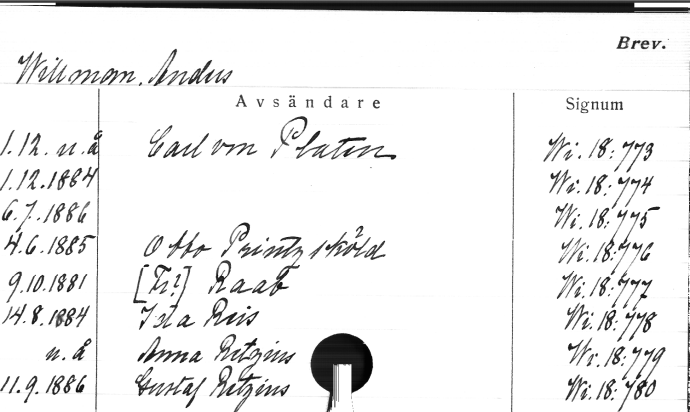 Brev.
Willman, Anders
Avsändare Signum
1.12. u.å Carl von Platen Wi. 18:773
1.12.1884 Wi. 18:774
6.7.1886 Wi. 18:775
4.6.1885 Otto Printzsköld Wi. 18:776
9.10.1881 [Fr?] Raab Wi. 18:777
14.8.1884 Reis Wi. 18:778
u.å Anna Retzius Wi. 18:779
11.9.1886 Gustaf Retzius Wi. 18:780